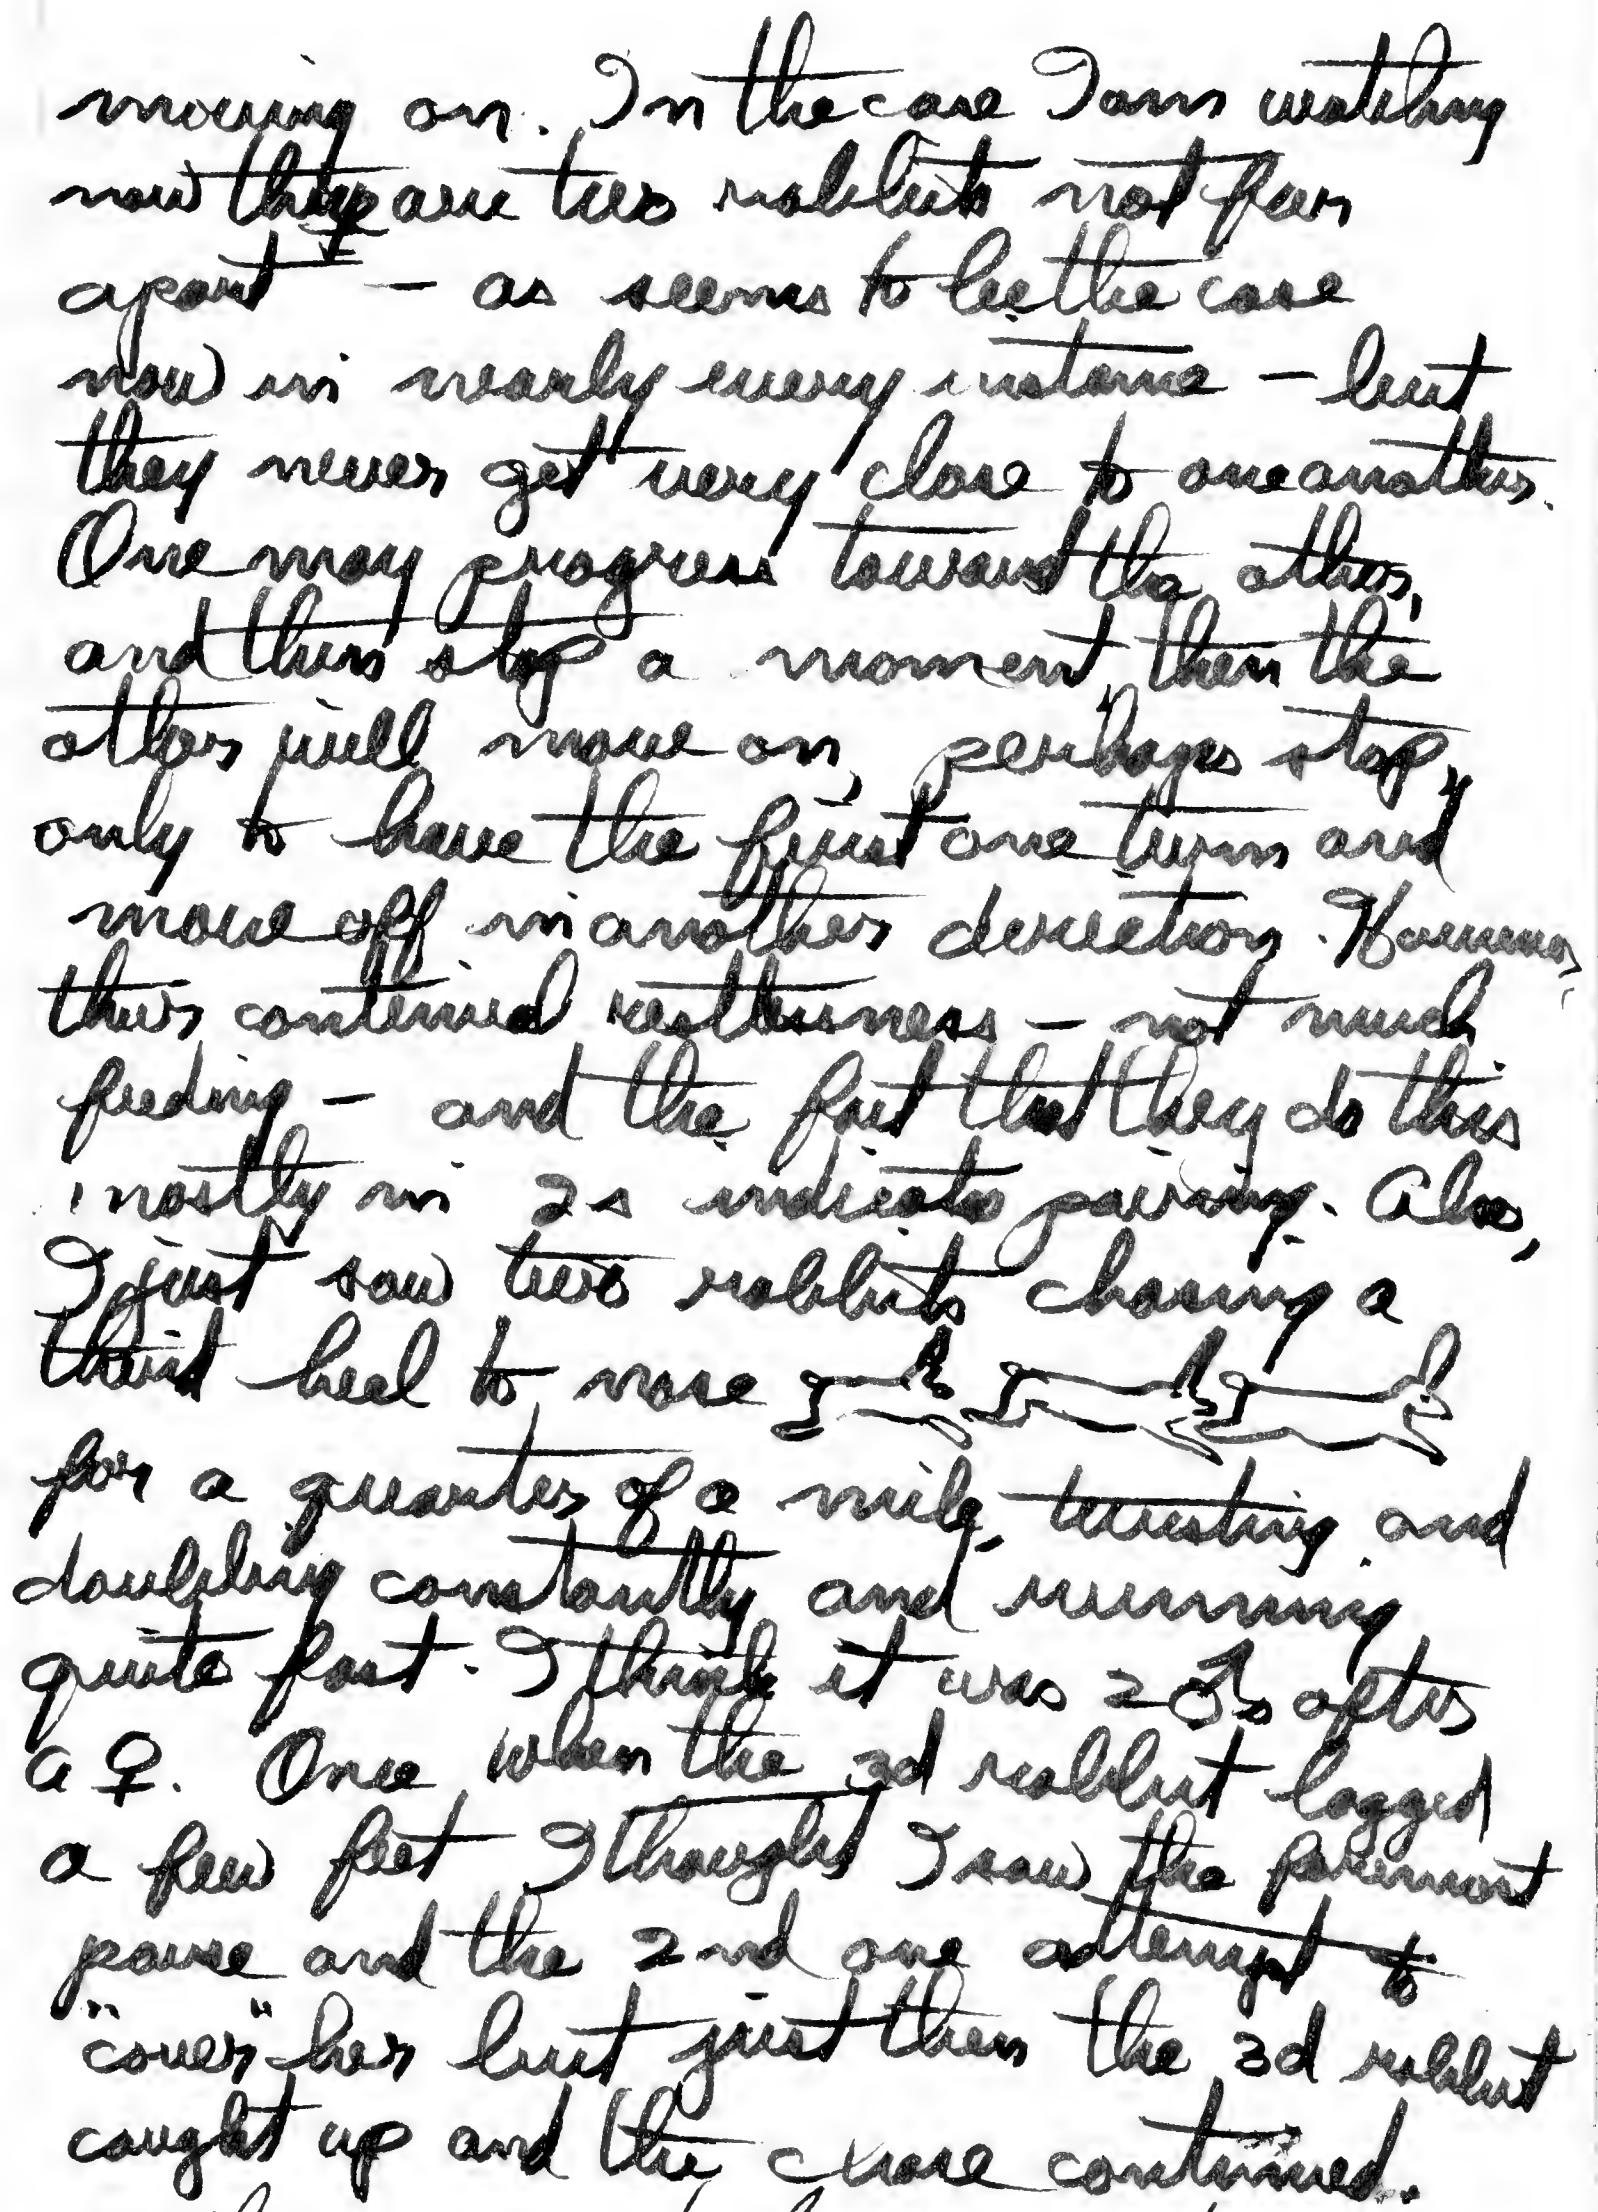 moving on. In the case I am watching
now there are two rabbits not far
apart – as seems to be the case
now in nearly every instance – but
they never get very close to one another.
One may progress toward the other,
and then stop a moment, then the
other will move on, perhaps stop,
only to have the first one turn and
move off in another direction. However,
their continued restlessness – not much
feeding – and the fact that they do this
mostly in 2s indicate pairing. Also,
I just saw two rabbits chasing a
third heel to nose
for a quarter of a mile, twisting and
doubling constantly and running
quite fast. I think it was 2 ♂s after
a ♀. Once when the 3d rabbit lagged
a few feet I thought I saw the foremost
pause and the 2nd one attempt to
"cover" her but just then the 3d rabbit
caught up and the chase continued.